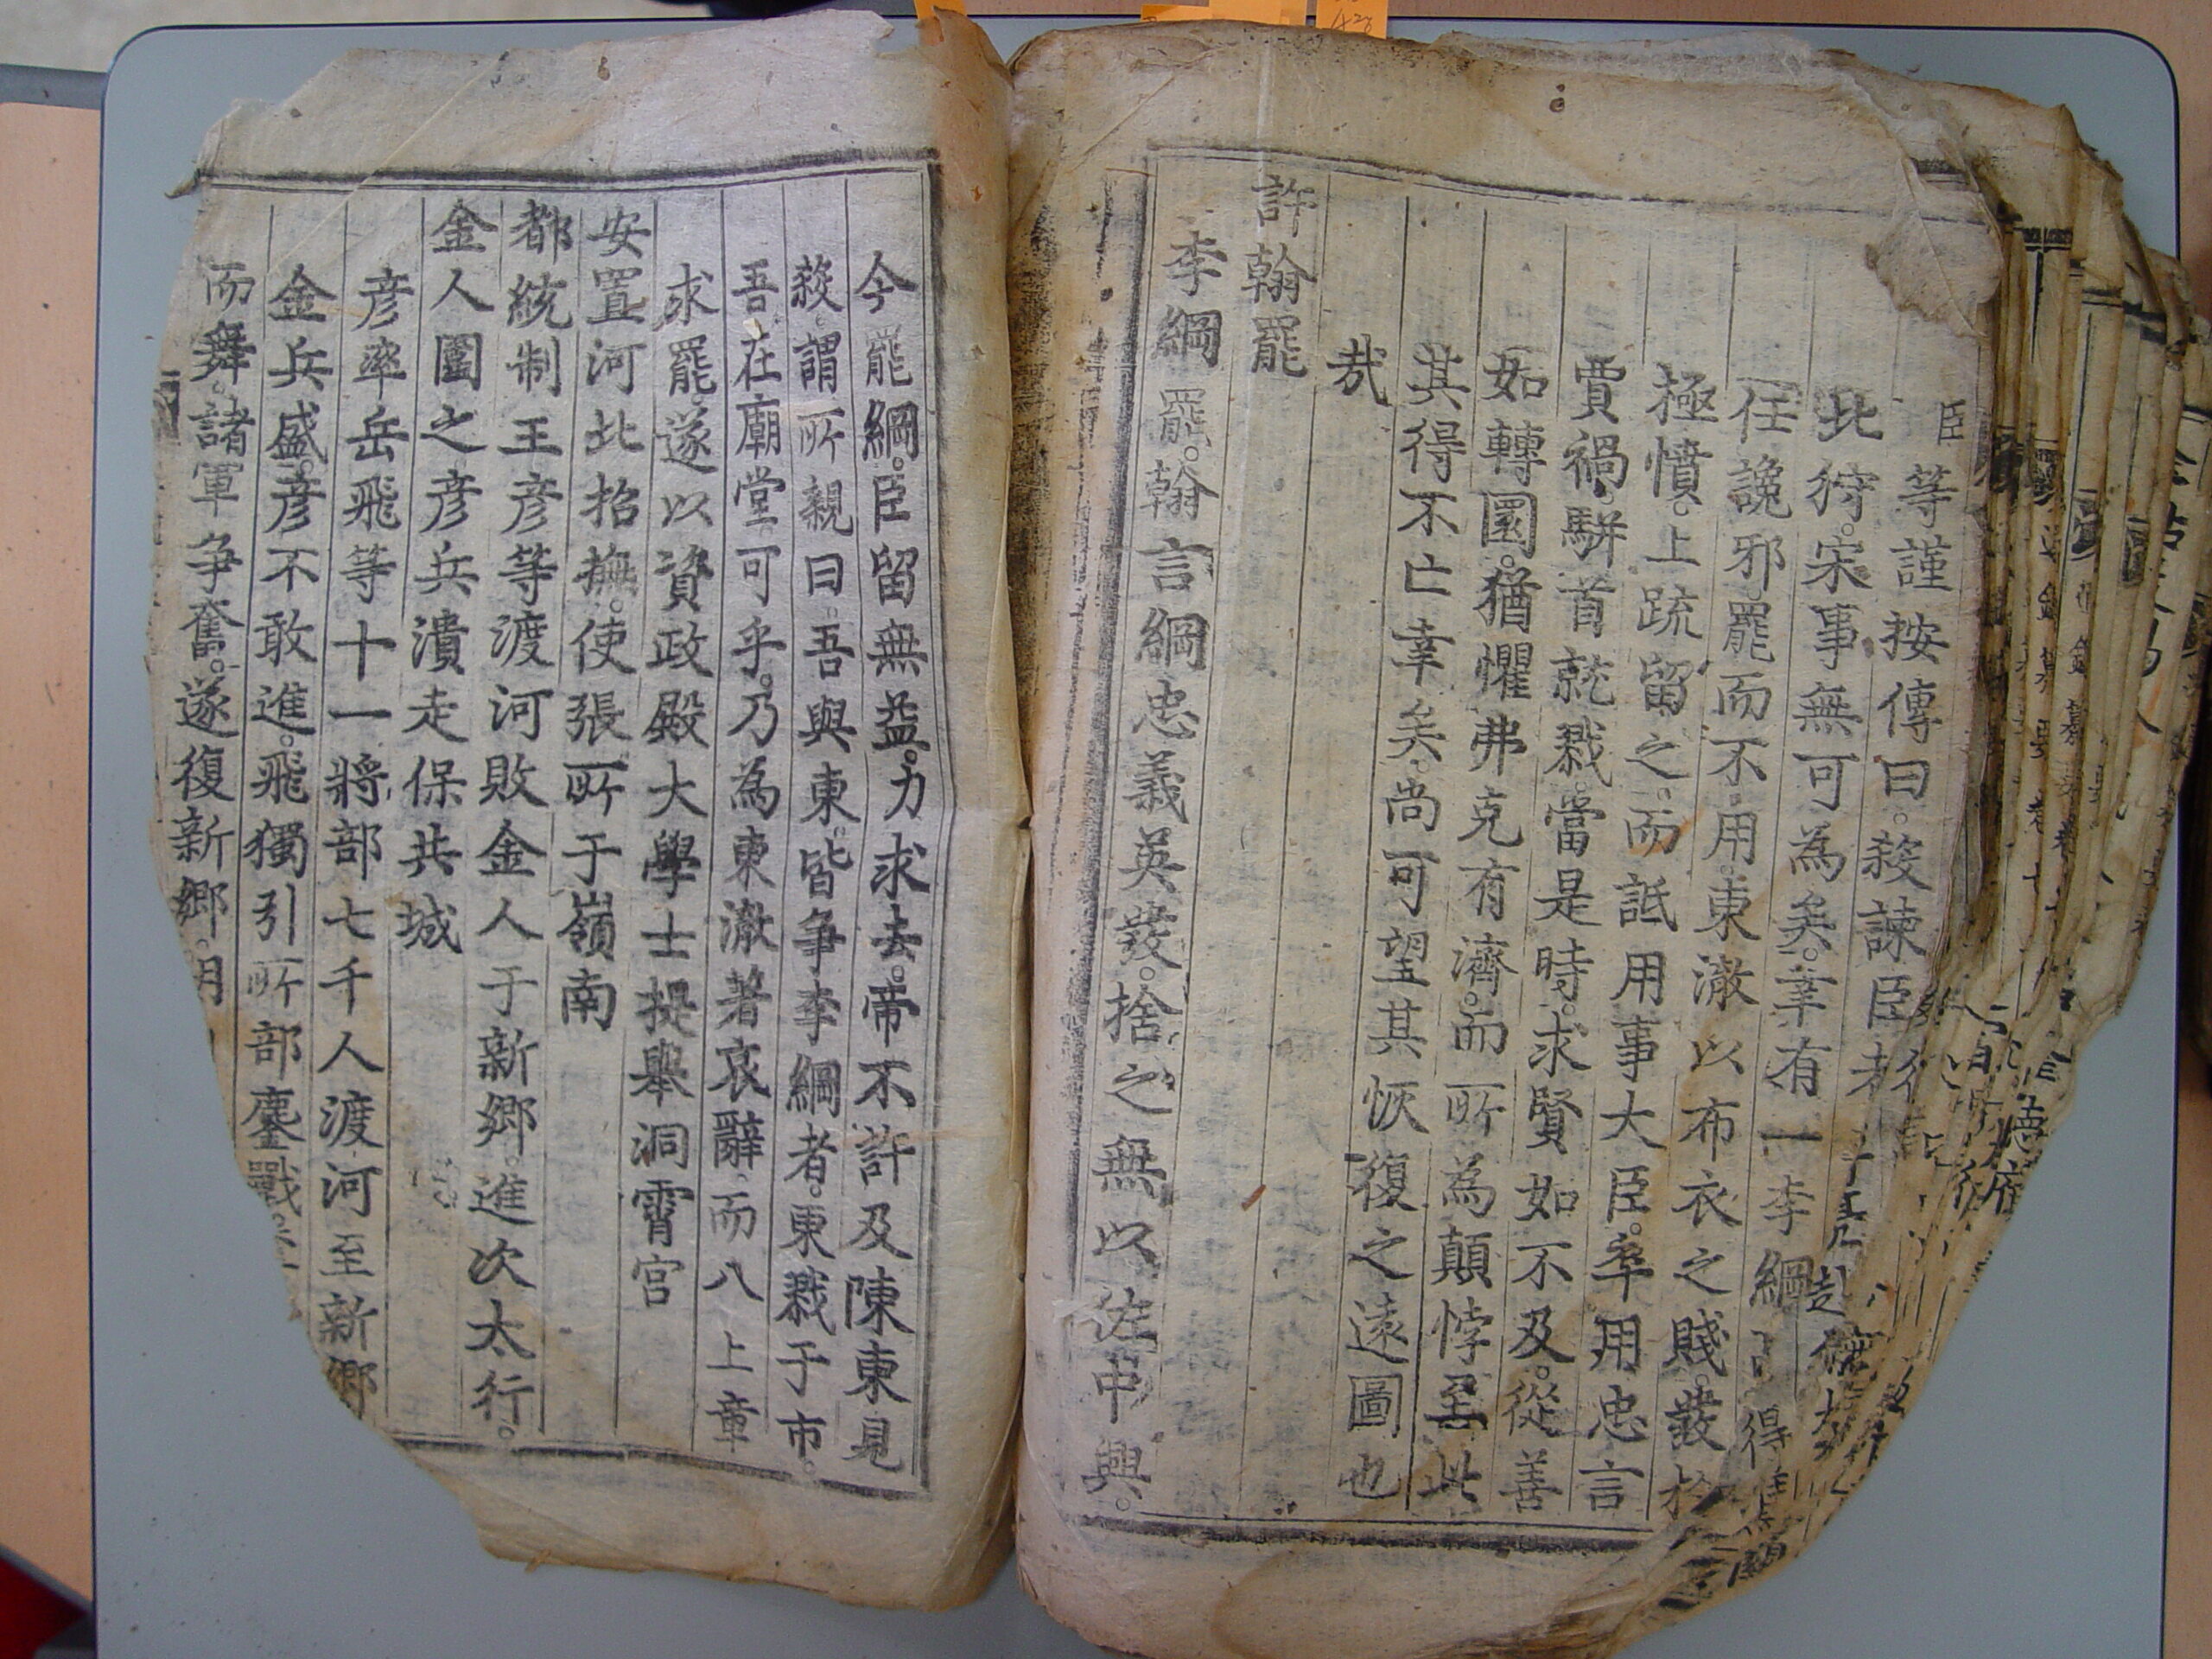 臣等謹按傳曰。殺諫臣者
北狩。宋事無可為矣。幸有一李綱
任讒邪。罷而不用。東澈以布衣之賤。發於
極憤。上疏留之。而詆用事大臣。卒用忠言
賈禍。駢首就戮。當是時。求賢如不及。從善
如轉圜。猶懼弗克有濟。而所為顛悖至此
其得不亡幸矣。尚可望其恢復之遠圖也
哉
許翰罷
李綱罷。翰言綱忠義英發。捨之無以佐中興。
今罷綱。臣留無益。力求去。帝不許及陳東見
殺。謂所親曰。吾與東。皆爭李綱者。東戮于市。
吾在廟堂。可乎。乃為東澈著哀辭。而八上章
求罷。遂以資政殿大學士提舉洞霄宮
安置河北招撫。使張所于嶺南
都統制王彦等渡河敗金人于新鄉。進次太行。
金人圍之彦兵潰走保共城
彦率岳飛等十一將。部七千人渡河至新鄉
金兵盛。彦不敢進。飛獨引所部鏖戰。
而舞。諸軍爭奮。遂復新鄉。明